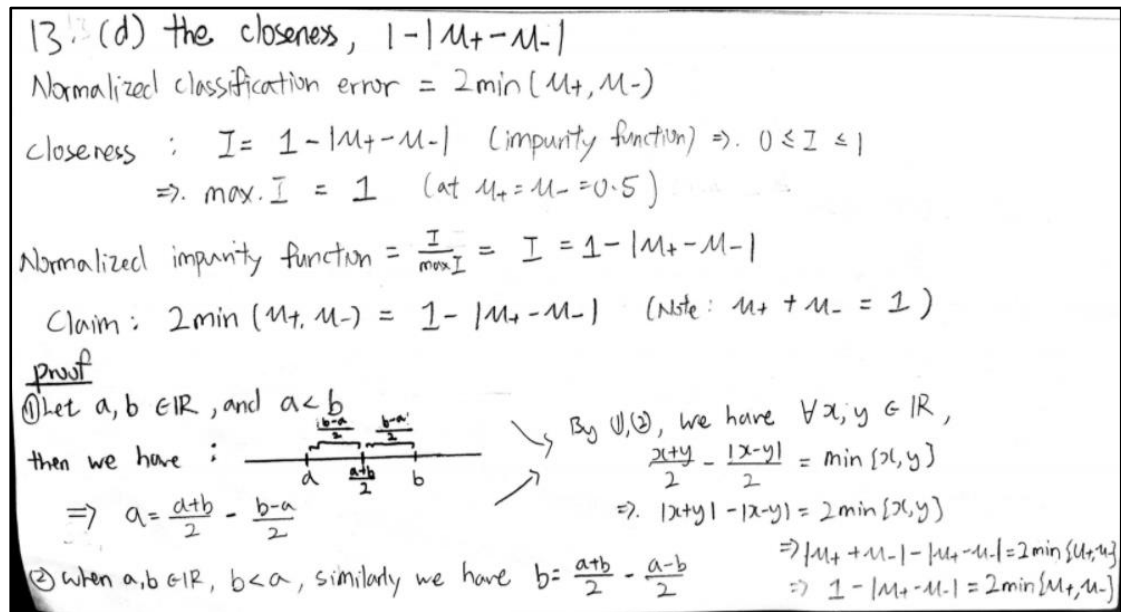 13. (d) the closeness, 1-|μ+-μ-|
Normalized classification error = 2min(μ+, μ-)
closeness : I = 1-|μ+-μ-| (impurity function) ⇒. 0 ≤ I ≤ 1
⇒. max. I = 1 (at μ+=μ-=0.5)
Normalized impurity function = I/max I = I = 1-|μ+-μ-|
Claim : 2min(μ+, μ-) = 1-|μ+-μ-| (Note: μ+ + μ- = 1)
proof
① Let a, b ∈ IR, and a<b
then we have :
(b-a)/2 (b-a)/2
a (a+b)/2 b
⇒ a = (a+b)/2 - (b-a)/2
② when a, b ∈ IR, b<a, similarly we have b = (a+b)/2 - (a-b)/2
By ①,②, we have ∀x, y ∈ IR,
(x+y)/2 - |x-y|/2 = min{x,y}
⇒. |x+y| - |x-y| = 2min{x,y}
⇒ |μ+ + μ-| - |μ+-μ-| = 2min{μ+,μ-}
⇒ 1-|μ+-μ-| = 2min{μ+,μ-}